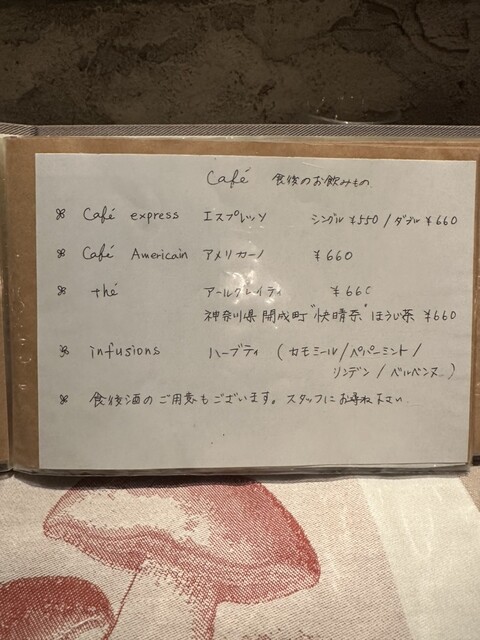 Café 食後のお飲みもの
Café express エスプレッソ シングル ¥550 / ダブル ¥660
Café Americain アメリカーノ ¥660
thé アールグレイティ ¥660
神奈川県 開成町 "快晴茶" ほうじ茶 ¥660
infusions ハーブティ ( カモミール / ペパーミント /
リンデン / ベルベンヌ )
食後酒のご用意もございます。スタッフにお尋ね下さい.